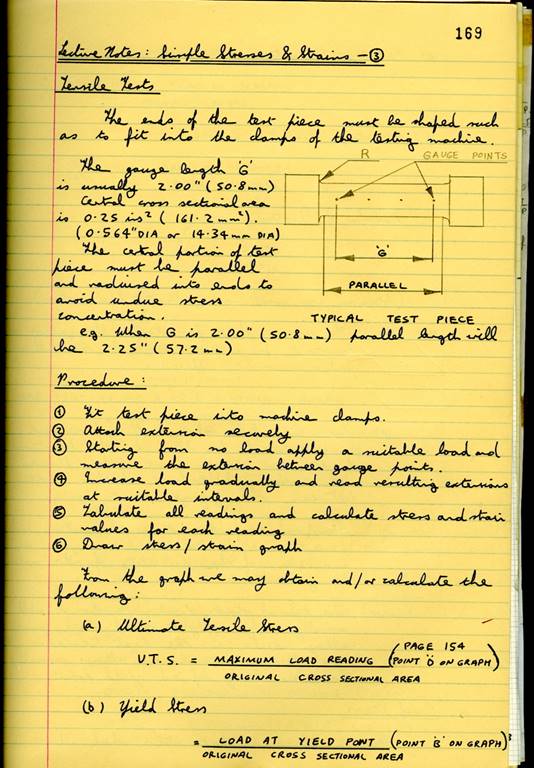 169
Lecture Notes: Simple Stresses & Strains - ③
Tensile Tests
The ends of the test piece must be shaped such
as to fit into the clamps of the testing machine.
The gauge length 'G'
is usually 2.00" (50.8mm)
Central cross sectional area
is 0.25 ins² (161.2mm²).
(0.564" DIA or 14.34mm DIA)
The central portion of test
piece must be parallel
and radiused into ends to
avoid undue stress
concentration.
R
GAUGE POINTS
'G'
PARALLEL
TYPICAL TEST PIECE
e.g. When G is 2.00" (50.8mm) parallel length will
be 2.25" (57.2mm)
Procedure:
① Fit test piece into machine clamps.
② Attach extension securely
③ Starting from no load apply a suitable load and
measure the extension between gauge points.
④ Increase load gradually and read resulting extensions
at suitable intervals.
⑤ Tabulate all readings and calculate stress and strain
values for each reading
⑥ Draw stress/strain graph
From the graph we may obtain and/or calculate the
following:
(a) Ultimate Tensile Stress
U.T.S. = MAXIMUM LOAD READING (PAGE 154 POINT 'D' ON GRAPH)
ORIGINAL CROSS SECTIONAL AREA
(b) Yield Stress
= LOAD AT YIELD POINT (POINT 'B' ON GRAPH)
ORIGINAL CROSS SECTIONAL AREA